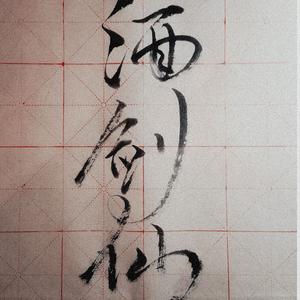 酒剑仙